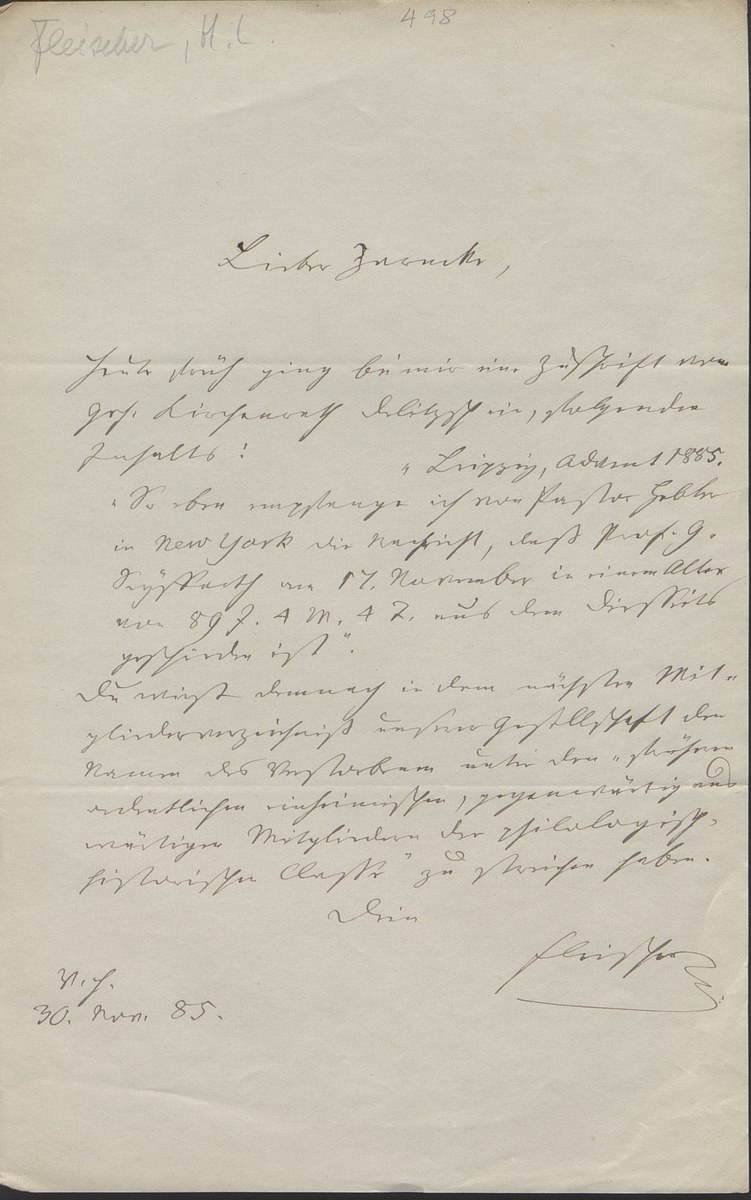 Fleischer, H. L.
498
Lieber Zarncke,
Heute früh ging bei mir eine Zuschrift von
Geh. Kirchenrath Delitzsch ein, folgenden
Inhalts:
„Leipzig, Advent 1885.
„So eben empfange ich von Pastor
in New York die Nachricht, daß Prof. G.
Seyffarth am 17. November in einem Alter
von 89 J. 4 M. 4 T. aus dem Diesseits
geschieden ist“.
Du wirst demnach in dem nächsten Mit-
gliederverzeichniß unserer Gesellschaft den
Namen des Verstorbenen unter den „früheren
ordentlichen einheimischen, gegenwärtig aus-
wärtigen Mitgliedern der philologisch-
historischen Classe“ zu streichen haben.
Dein
Fleischer
V. H.
30. Nov. 85.